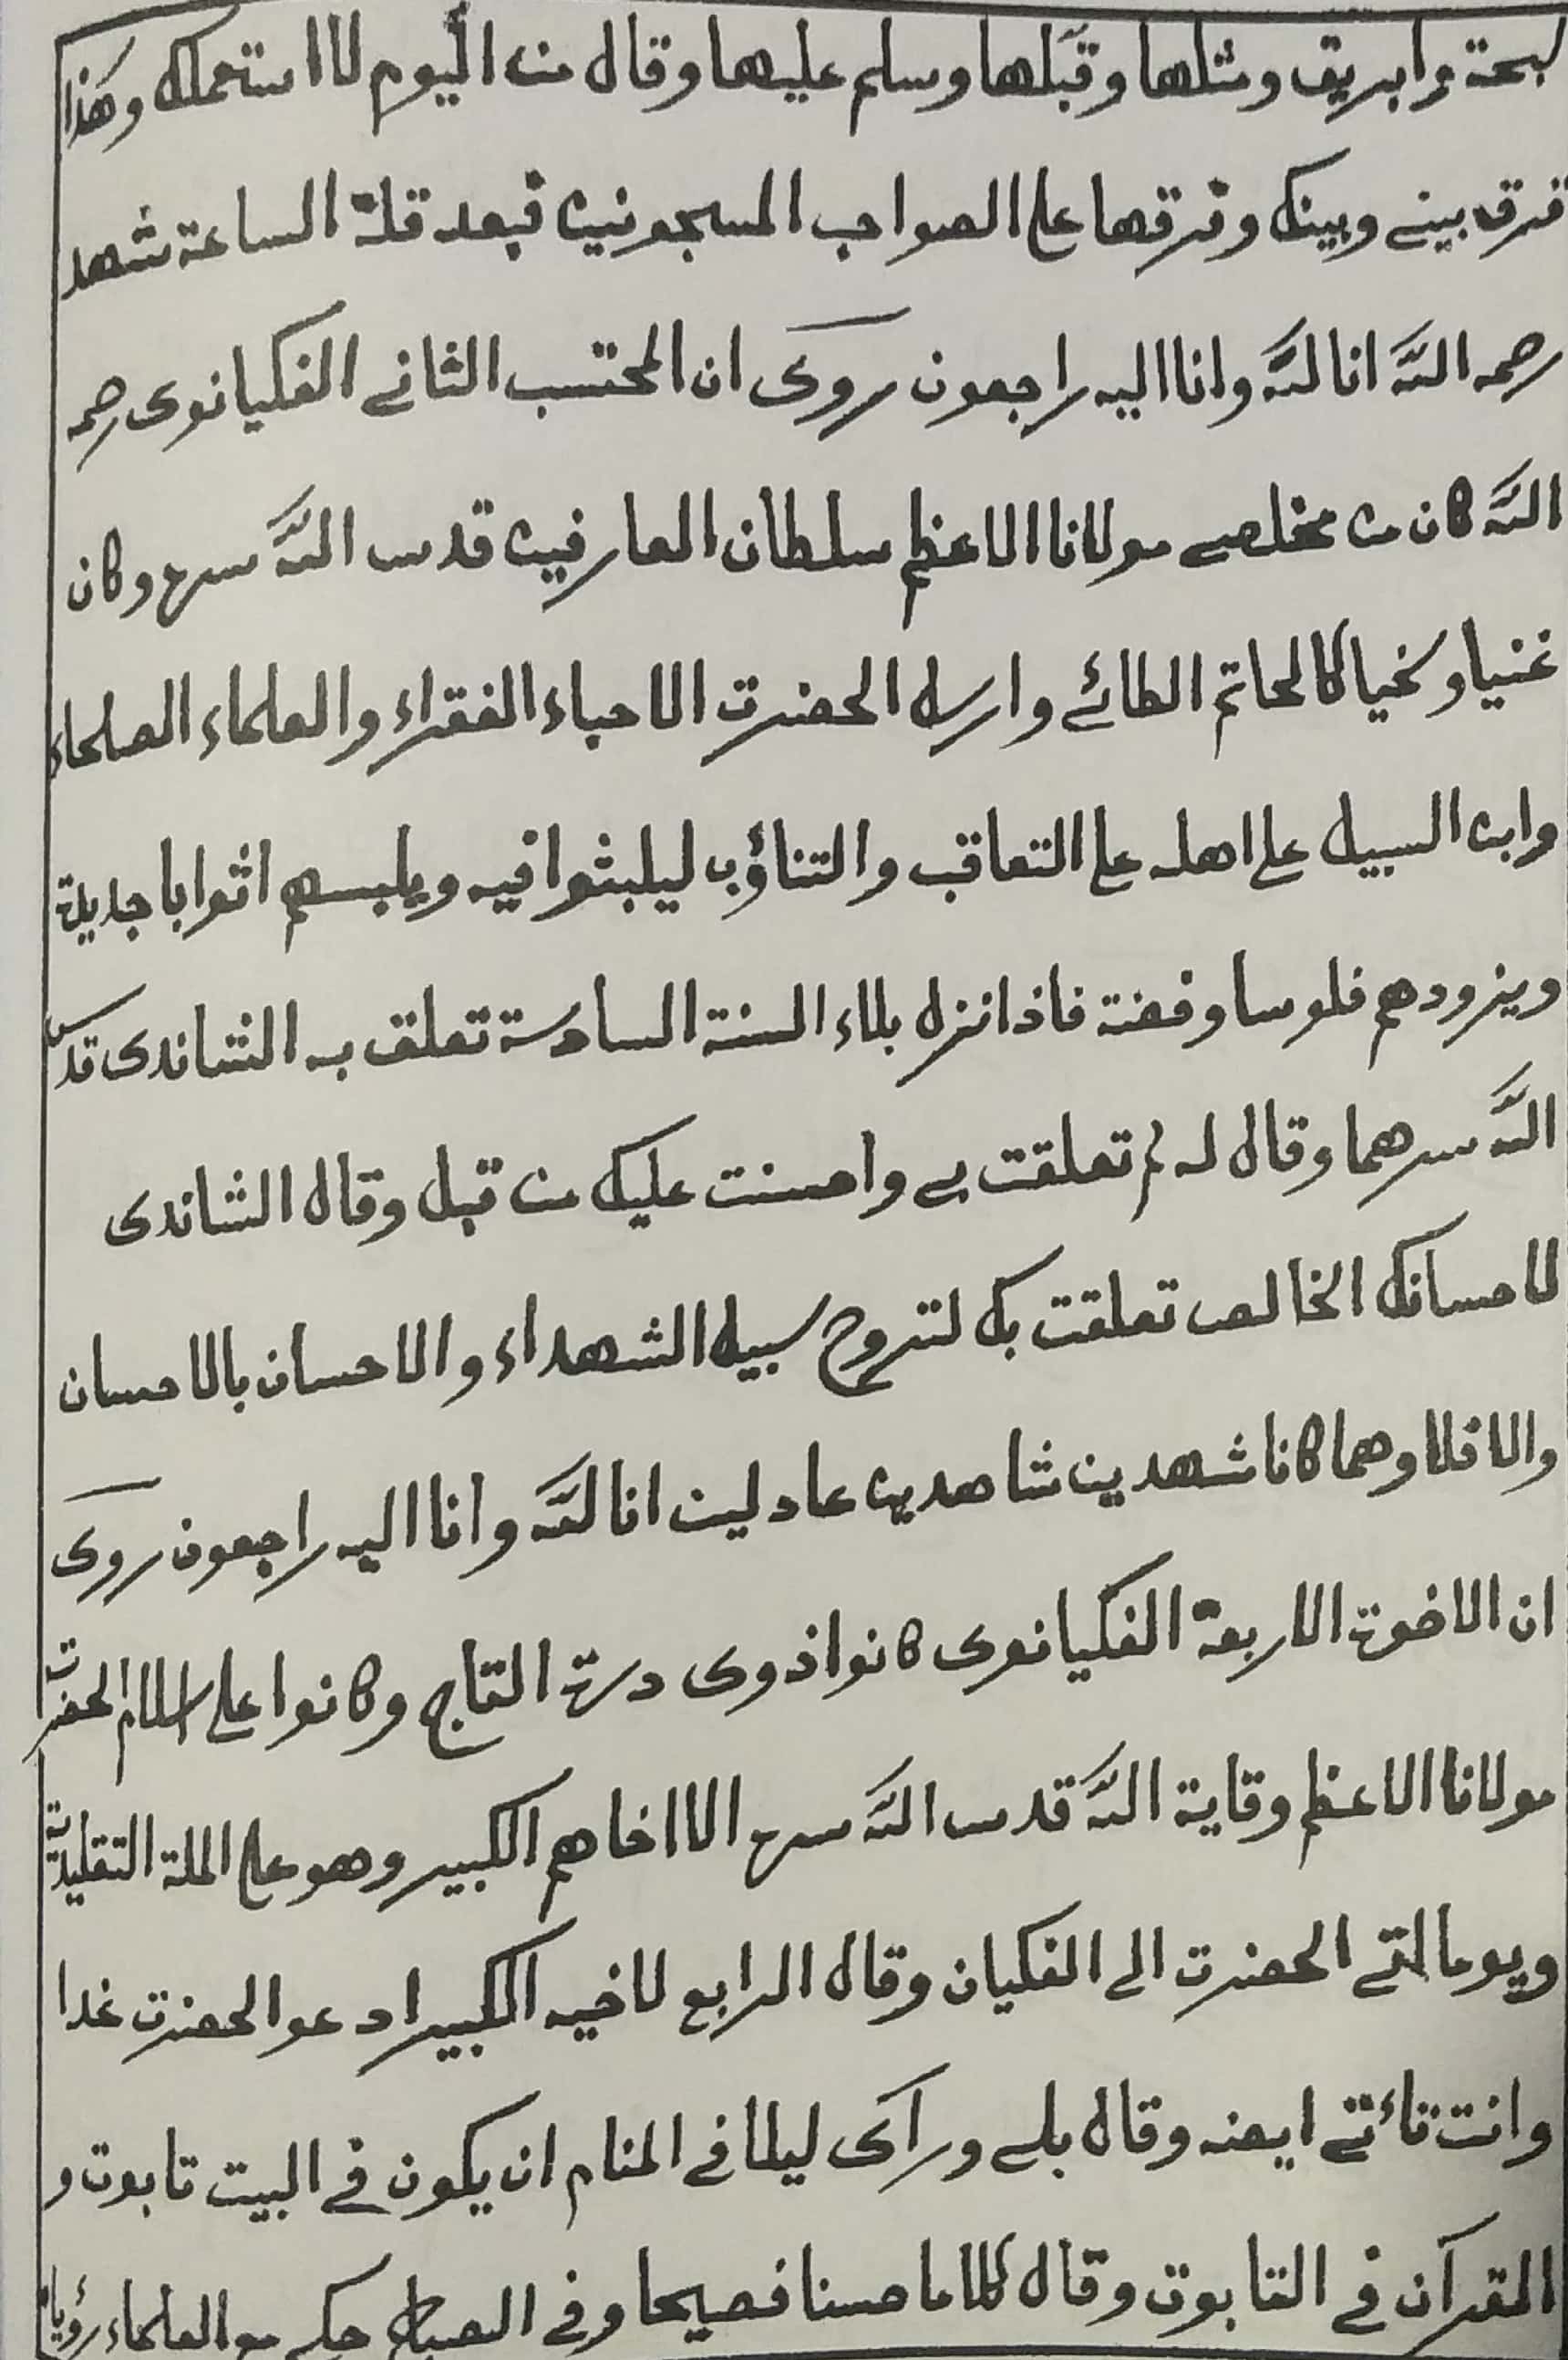 لبحة وابريق ومثلها وقبَلها وسلم عليها وقال من اليوم لا استعملك وهذا
فرق بيني وبينك وفرقها على الصواحب المسجونين فبعد قلة الساعة شهد
رحمه اللّه انا للّه وانا اليه راجعون روى ان المحتسب الثاني الفكيانوى رحمه
اللّه كان من مخلصي مولانا الاعظم سلطان العارفين قدس اللّه سره وكان
غنيا وسخيا كالحاتم الطائي وارسل الحضرت الاحباء الفقراء والعلماء الصلحاء
وابن السبيل على اهله على التعاقب والتناؤب ليلبثوا فيه ويلبسهم اثوابا جديدة
ويزودهم فلوسا وفضة فاذا نزل بلاء السنة السادسة تعلق به الشاندى قدس
اللّه سرهما وقال له لم تعلقت بي واحسنت عليك من قبل وقال الشاندى
لاحسانك الخالص تعلقت بك لتروح سبيل الشهداء والاحسان بالاحسان
والا فلا وهما كانا شهدين شاهدين عادلين انا للّه وانا اليه راجعون روى
ان الاخوة الاربعة الفكيانوى كانوا ذوى درة التاج وكانوا على اسلام الحضرت
مولانا الاعظم وقاية اللّه قدس اللّه سره الا اخاهم الكبير وهو على الملة التقليدية
ويوما اتى الحضرت الى الفكيان وقال الرابع لاخيه الكبير ادعو الحضرت غدا
وانت تائتي ايضه وقال بلى ورآى ليلا في المنام ان يكون في البيت تابوت و
القرآن في التابوت وقال كلاما حسنا فصيحا وفي الصباح حكى مع العلماء رؤياه